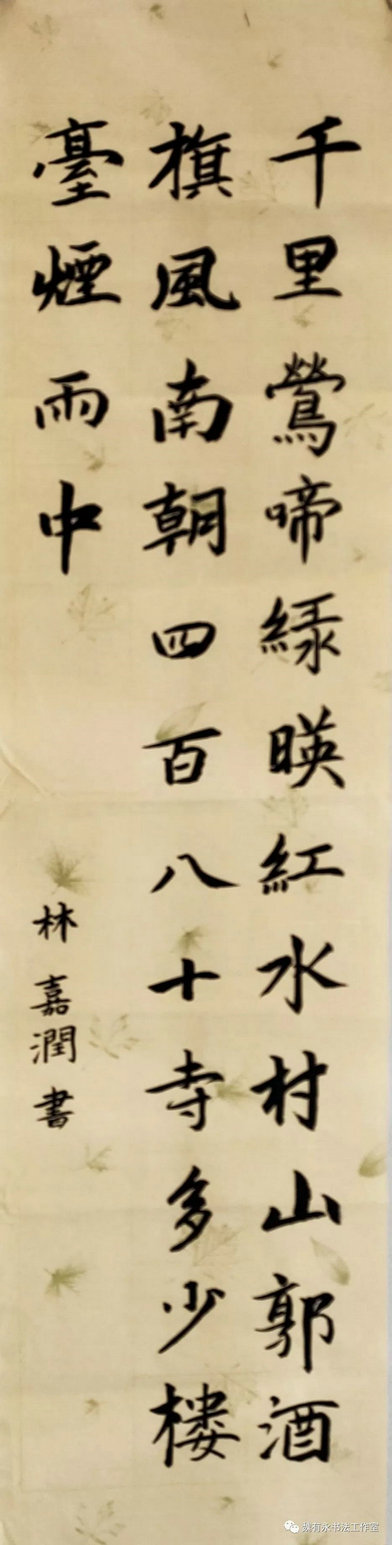 千里鶯啼緑暎紅水村山郭酒
旗風南朝四百八十寺多少楼
臺煙雨中
林嘉潤書
魏有永书法工作室